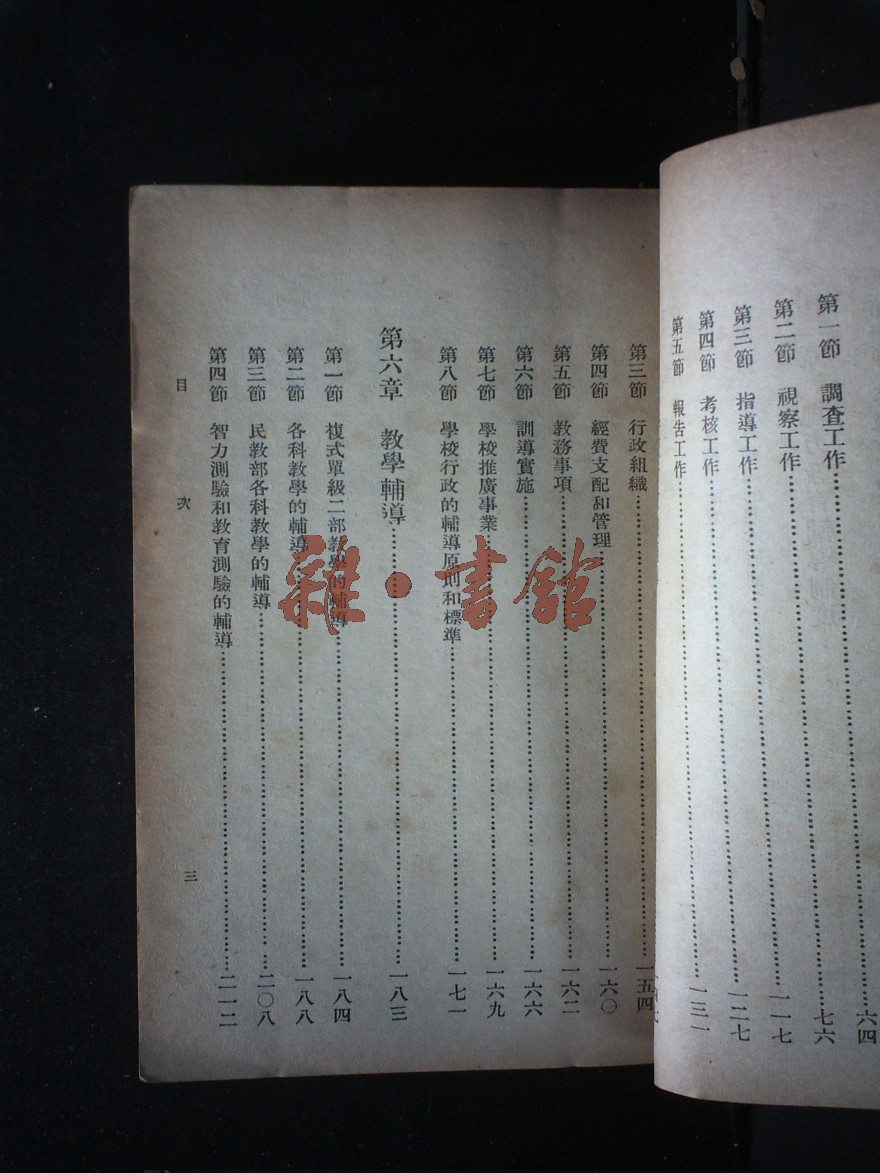 六四
第一節 調查工作……七六
第二節 視察工作……一一七
第三節 指導工作……一二七
第四節 考核工作……一三一
第五節 報告工作……
第三節 行政組織……一五四
第四節 經費支配和管理……一六〇
第五節 教務事項……一六二
第六節 訓導實施……一六六
第七節 學校推廣事業……一六九
第八節 學校行政的輔導原則和標準……一七一
第六章 教學輔導……一八三
第一節 複式單級二部教學的輔導……一八四
第二節 各科教學的輔導……一八八
第三節 民教部各科教學的輔導……二〇八
第四節 智力測驗和教育測驗的輔導……二一二
目次 三
雜·書館